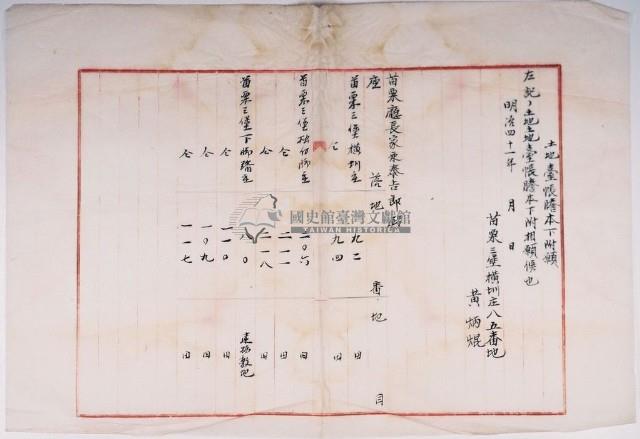 土地臺帳謄本下附願
左記ノ土地土地臺帳謄本下附相願候也
明治四十一年 月 日
苗栗三堡横圳庄八五番地
黄炳焜
苗栗廳長家永泰吉郎殿
座 落 地 番 地 目
苗栗三堡横圳庄 九二 田
仝 九四 田
苗栗三堡 脚庄 二〇六 田
仝 二一一 田
仝 二一八 田
苗栗三堡下脚踏庄
仝 一一〇 田
仝 一〇九 田
仝 一一七 田
國史館臺灣文獻館
TAIWAN HISTORICA